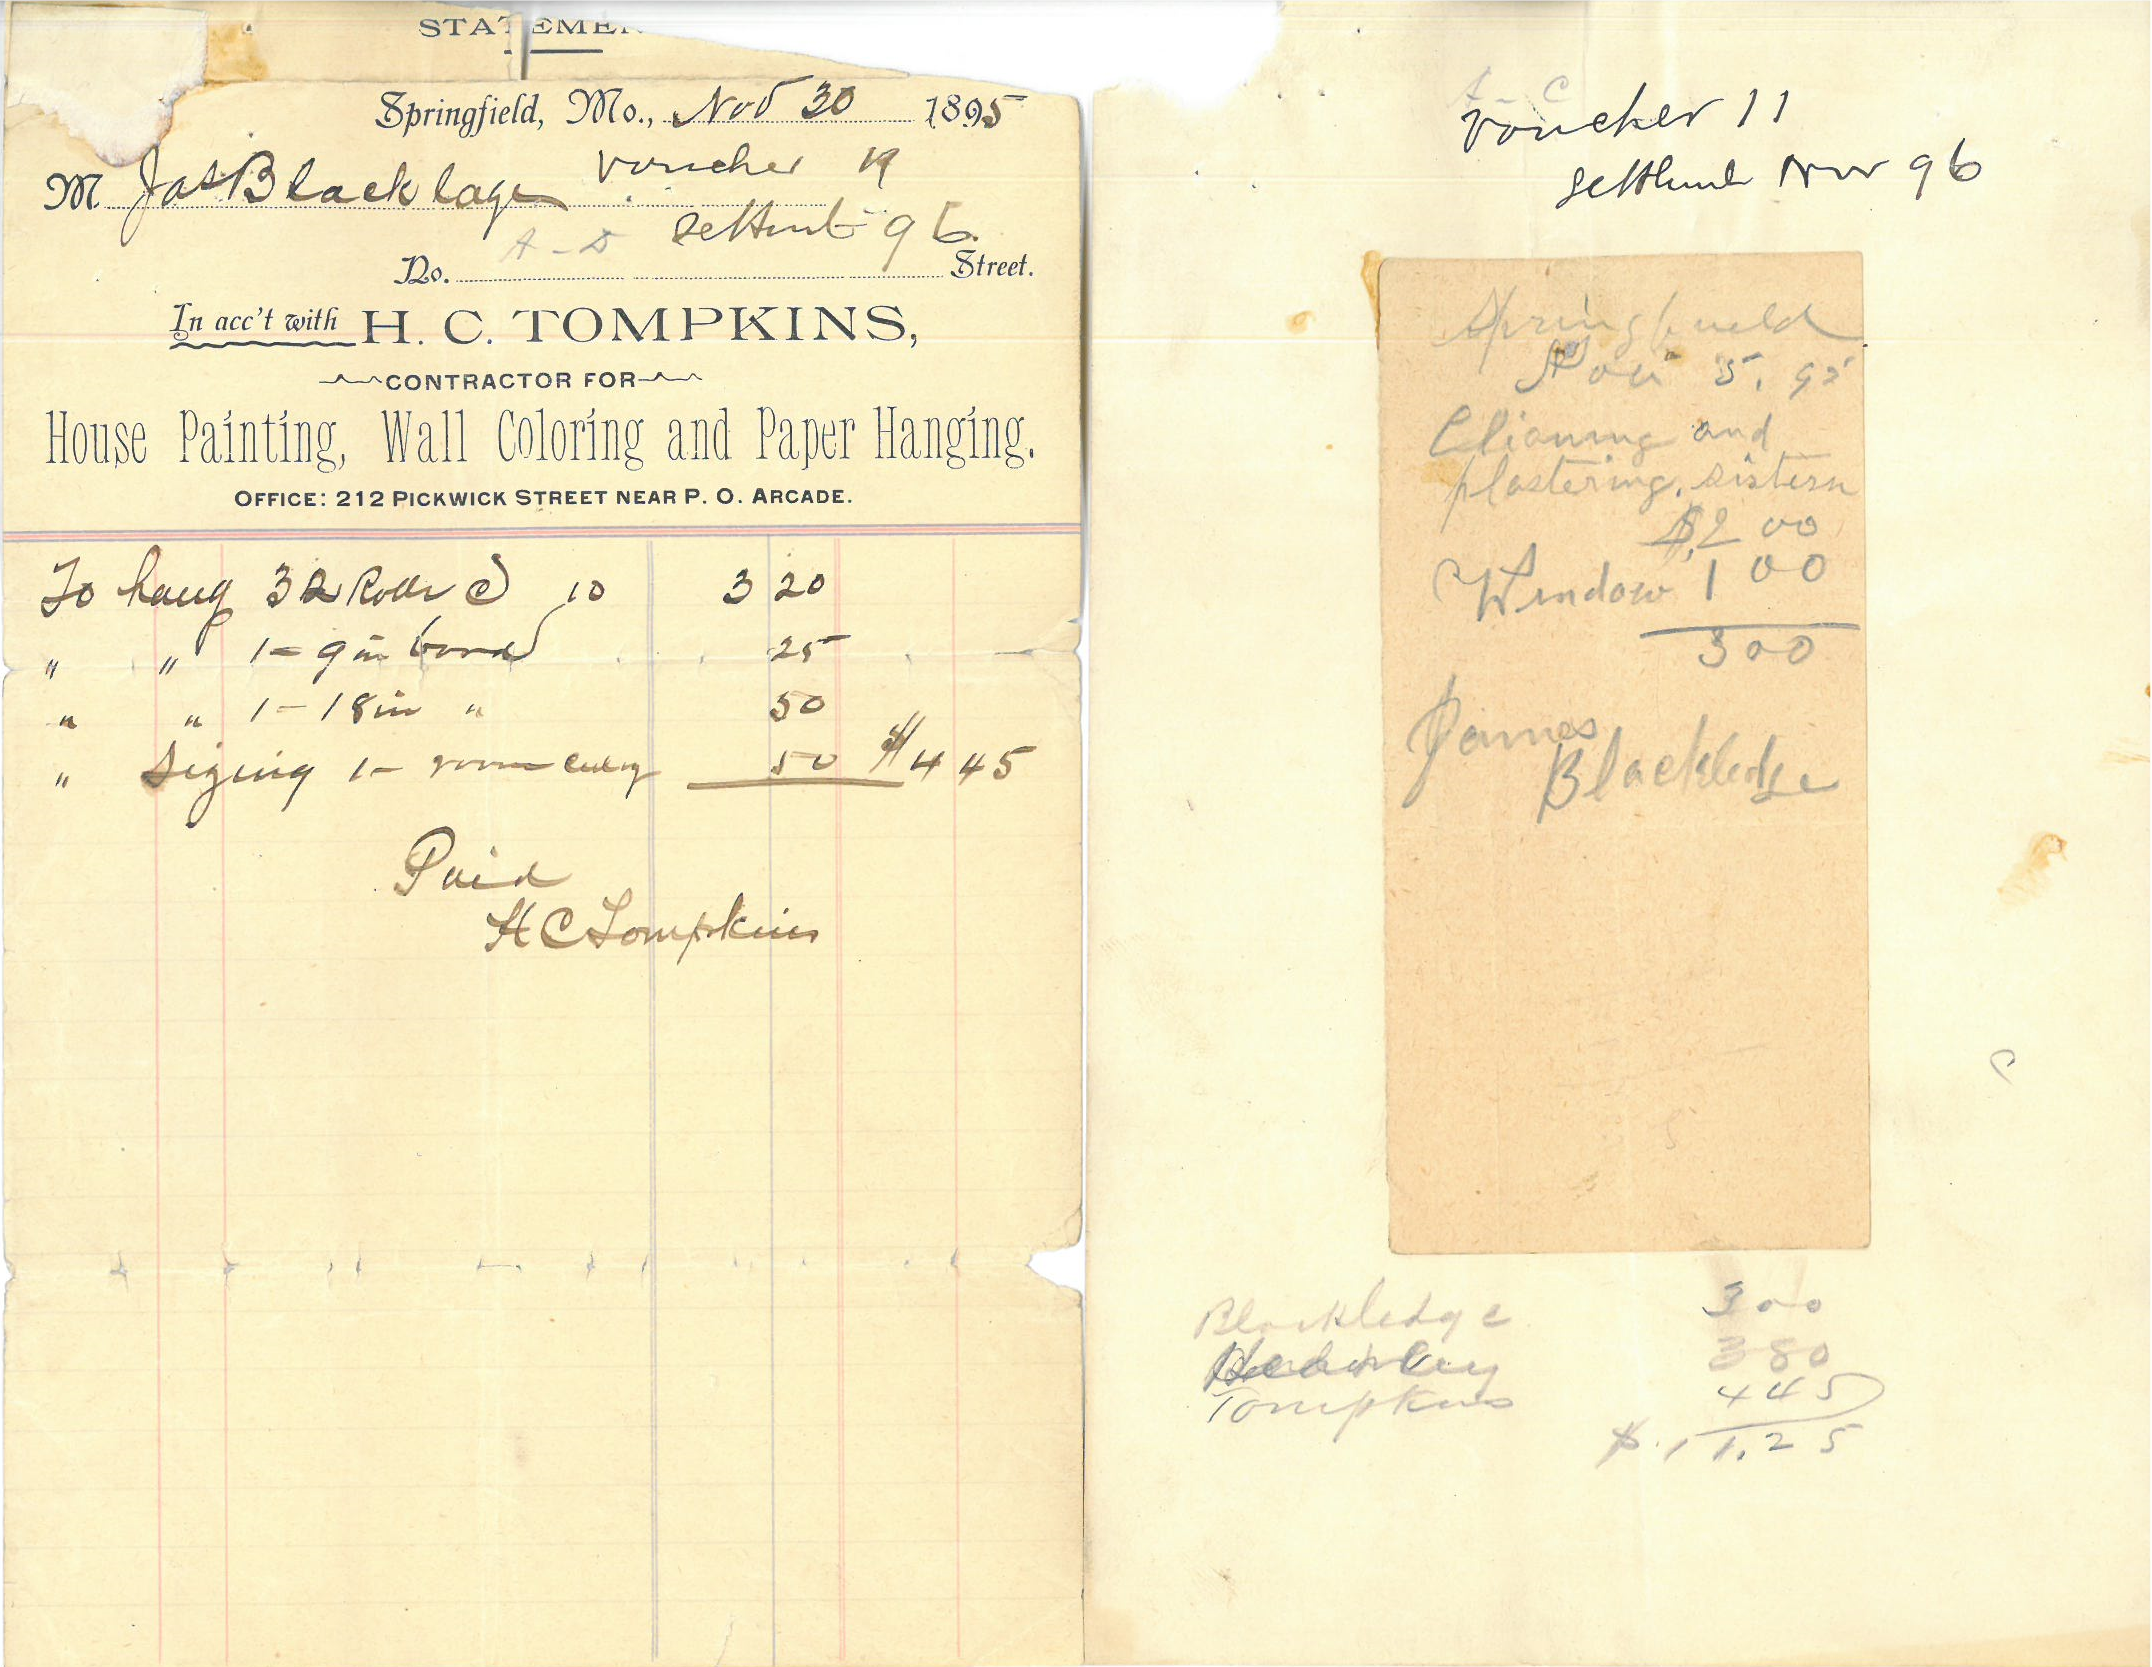 STATEMEN
Springfield, Mo., Nov 30 1895
M Jas Blacklage
Voucher 19
Settlmt 96.
A - D
No. Street.
In acc't with H. C. TOMPKINS,
CONTRACTOR FOR
House Painting, Wall Coloring and Paper Hanging.
OFFICE: 212 PICKWICK STREET NEAR P. O. ARCADE.
To hang 32 Rolls @ 10 3 20
" " 1 - 9 in bord 25
" " 1 - 18 in " 50
" Sizing 1 - room 50 $4 45
Paid
H C Tompkins
A - C
Voucher 11
Settlmt Nov 96
Springfield
Nov 5, 95
Clianing and
plastering, sistern
$2 00
Window 1 00
3 00
James
Blackledge
Blackledge 3 00
3 80
Tompkins 4 45
$ 11.25